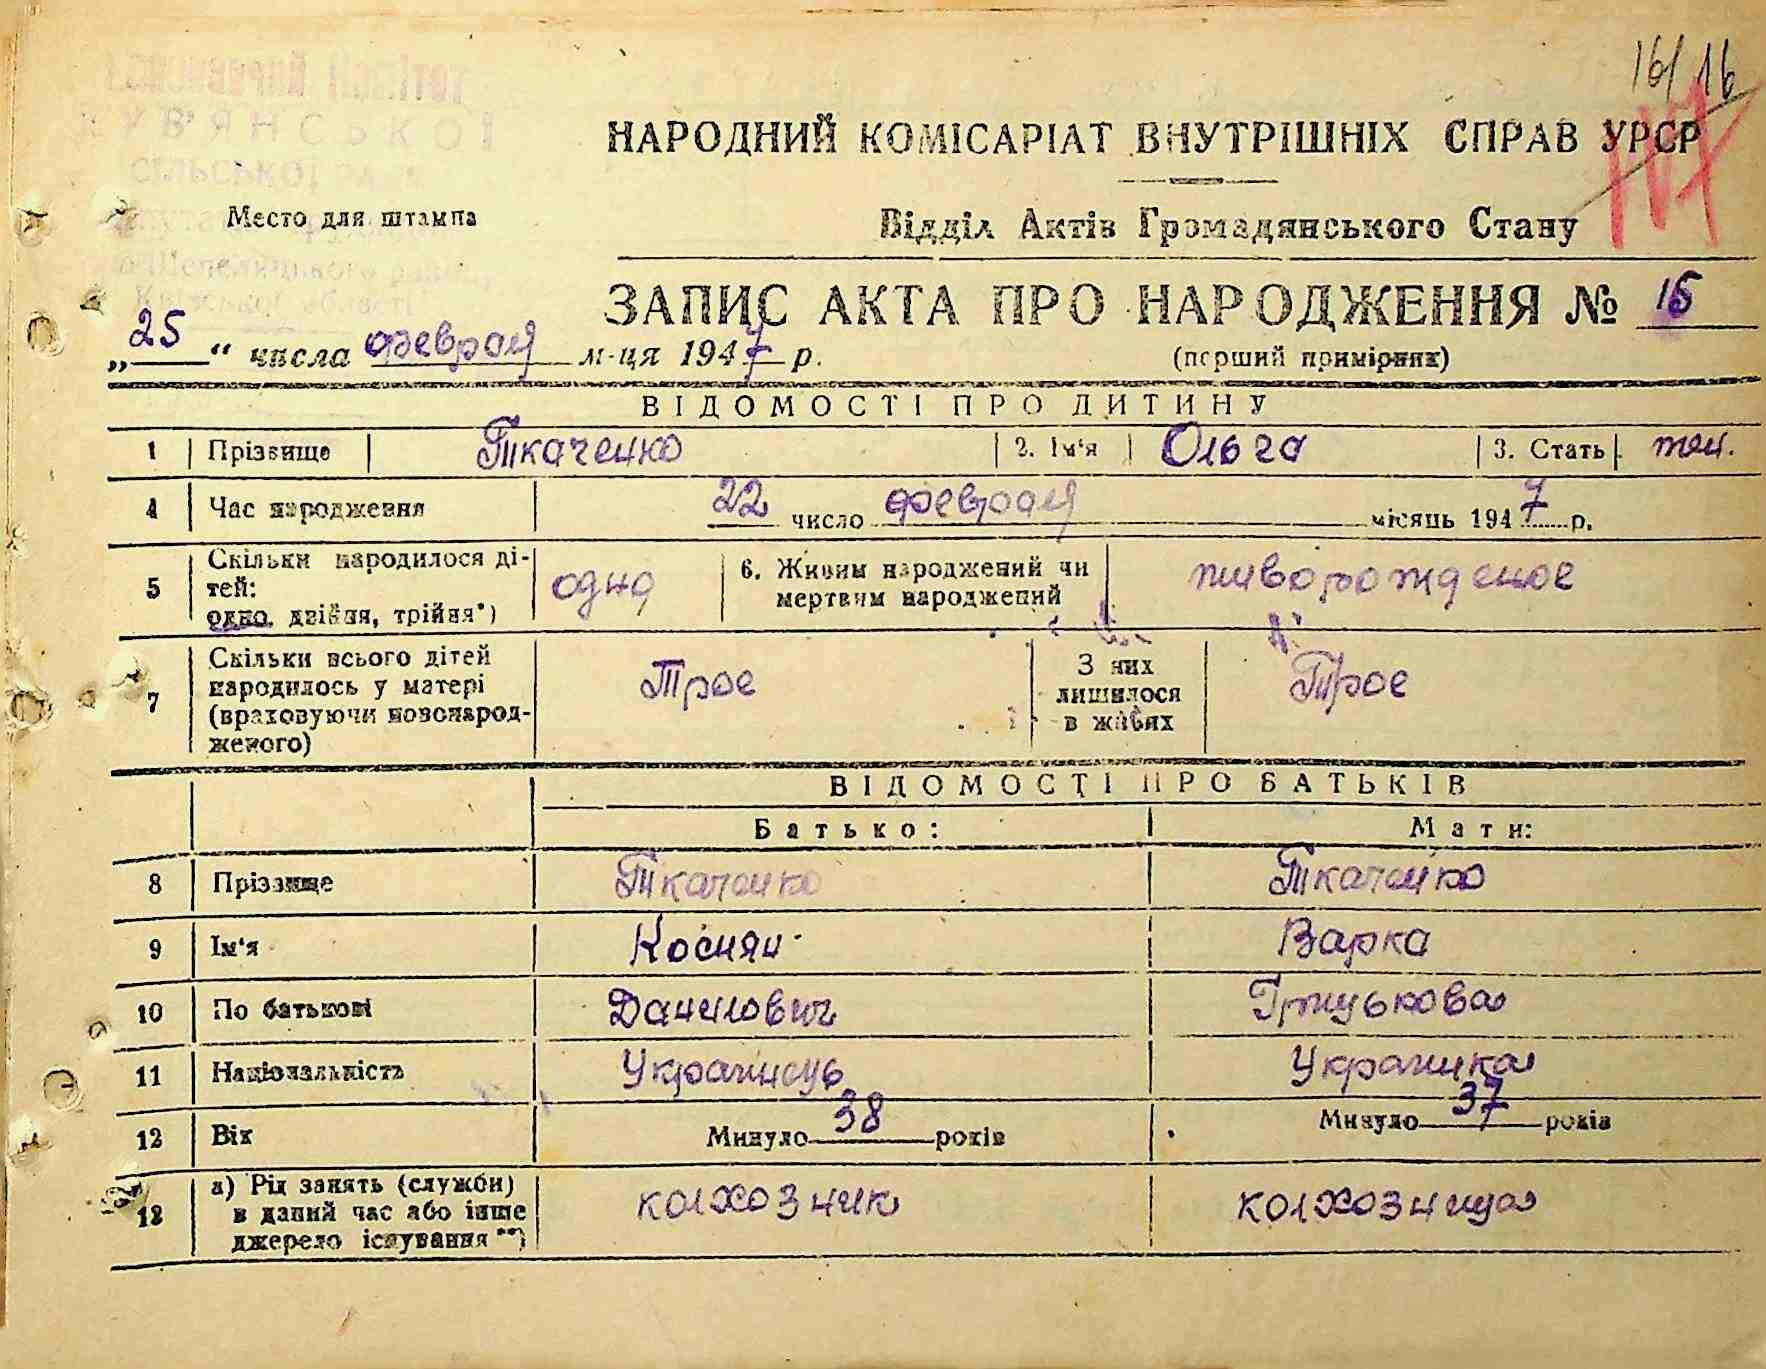 16/ 16
17
НАРОДНИЙ КОМІСАРІАТ ВНУТРІШНІХ СПРАВ УРСР
СІЛЬСЬКОЇ
Место для штампа
Відділ Актів Громадянського Стану
Київської області
ЗАПИС АКТА ПРО НАРОДЖЕННЯ № 15
„25“ числа февраля м-ця 1947 р.
(перший примірник)
ВІДОМОСТІ ПРО ДИТИНУ
1 Прізвище Ткаченко 2. Ім'я Ольга 3. Стать жен.
4 Час народження 22 число февраля місяць 1947 р.
5 Скільки народилося ді-
тей:
одно, двійня, трійня*) одно 6. Живим народжений чи
мертвим народжений живорожденое
7 Скільки всього дітей
народилось у матері
(враховуючи новонарод-
женого) Трое З них
лишилося
в живих Трое
ВІДОМОСТІ ПРО БАТЬКІВ
Батько: Мати:
8 Прізвище Ткаченко Ткаченко
9 Ім'я Косиян Варка
10 По батькові Данилович Грицькова
11 Національність Украинець Украинка
12 Вік Минуло 38 років Минуло 37 років
13 а) Рід занять (служби)
в даний час або інше
джерело існування**) колхозник колхозница